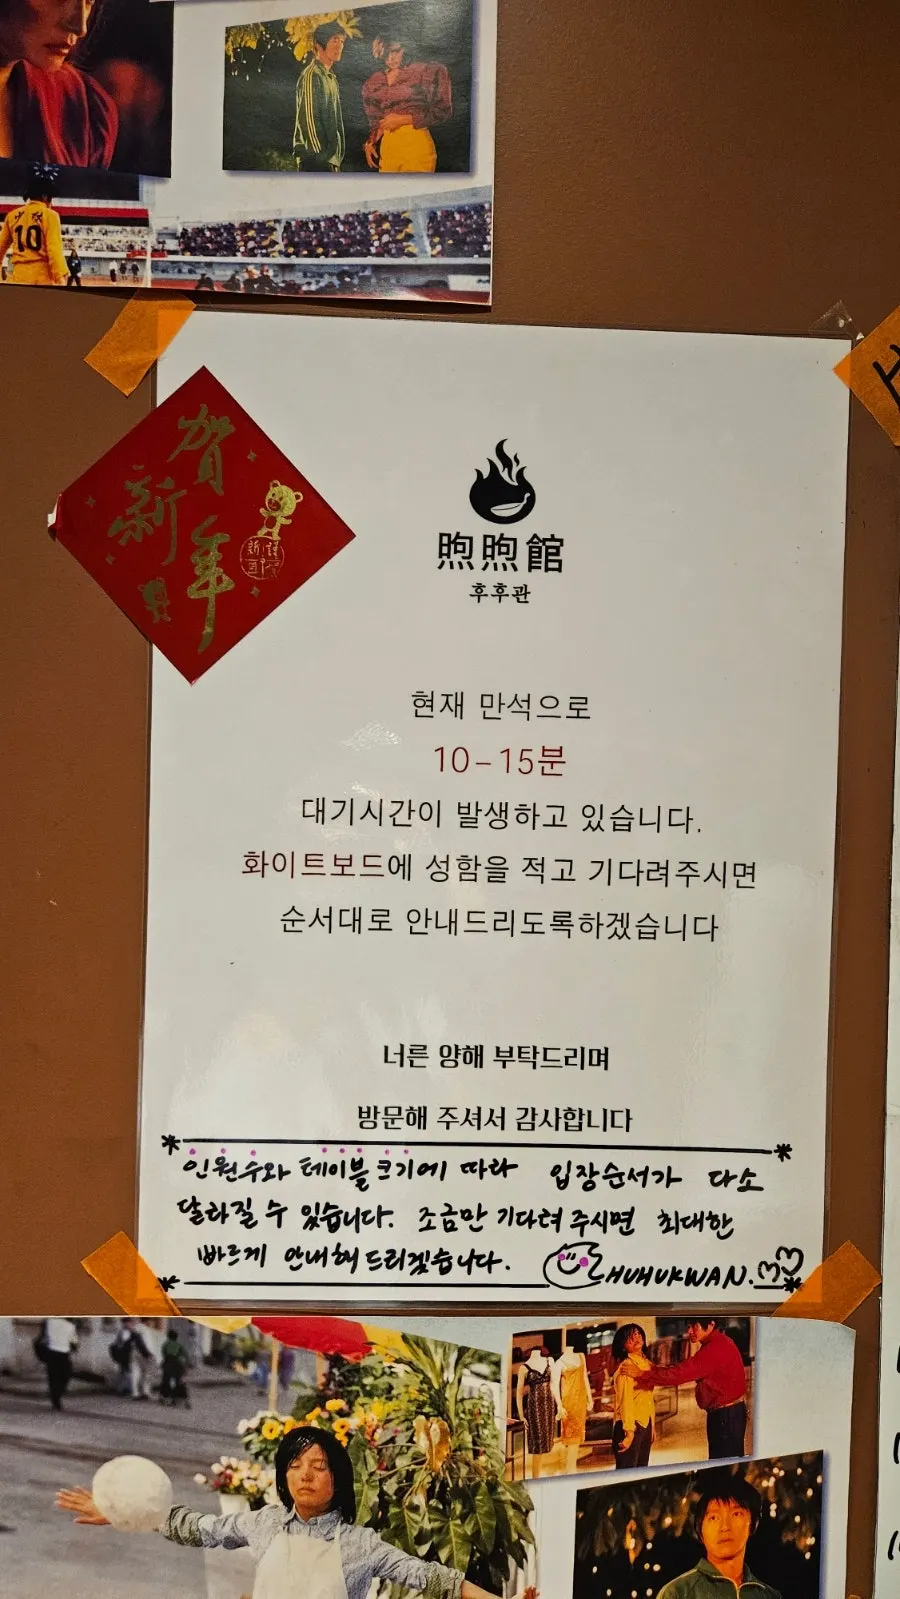 10
賀
新
年
煦煦館
후후관
현재 만석으로
10-15분
대기시간이 발생하고 있습니다.
화이트보드에 성함을 적고 기다려주시면
순서대로 안내드리도록하겠습니다
너른 양해 부탁드리며
방문해 주셔서 감사합니다
인원수와 테이블 크기에 따라 입장순서가 다소
달라질 수 있습니다. 조금만 기다려 주시면 최대한
빠르게 안내해 드리겠습니다. HUHUKWAN.